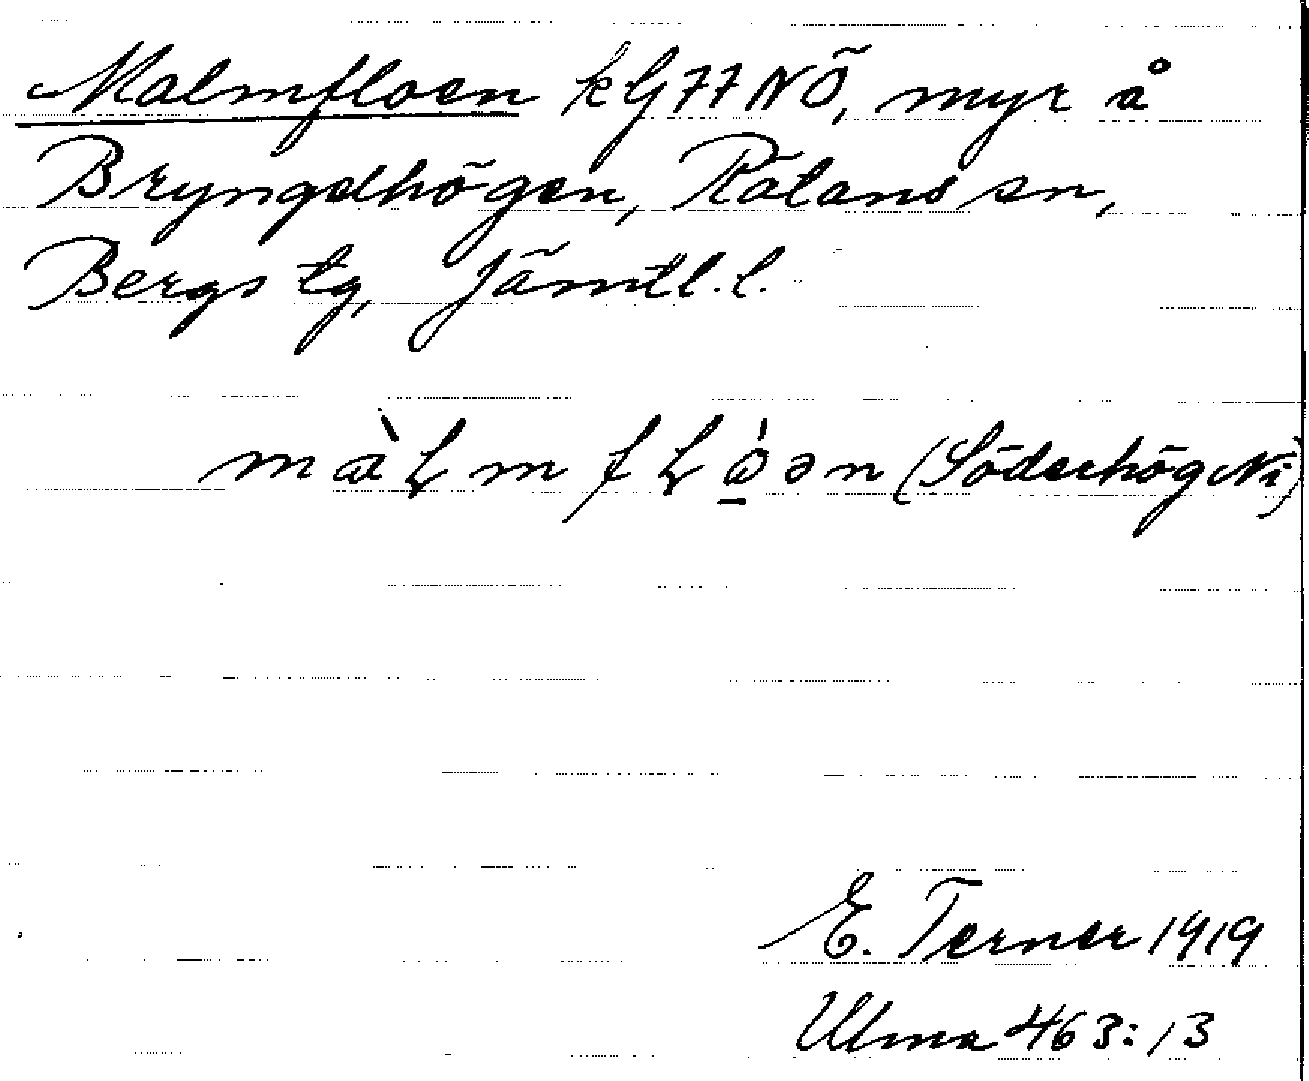 Malmfloen kG77NÖ, myr å
Bryngelhögen, Rätans sn,
Bergs tg, Jämtl. l.
(Söderhög Ni)
E. Terner 1919
Ulma 463:13